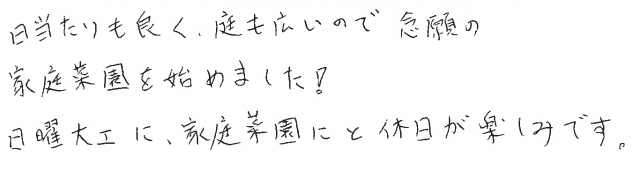 日当たりも良く、庭も広いので念願の
家庭菜園を始めました!
日曜大工に、家庭菜園にと休日が楽しみです。